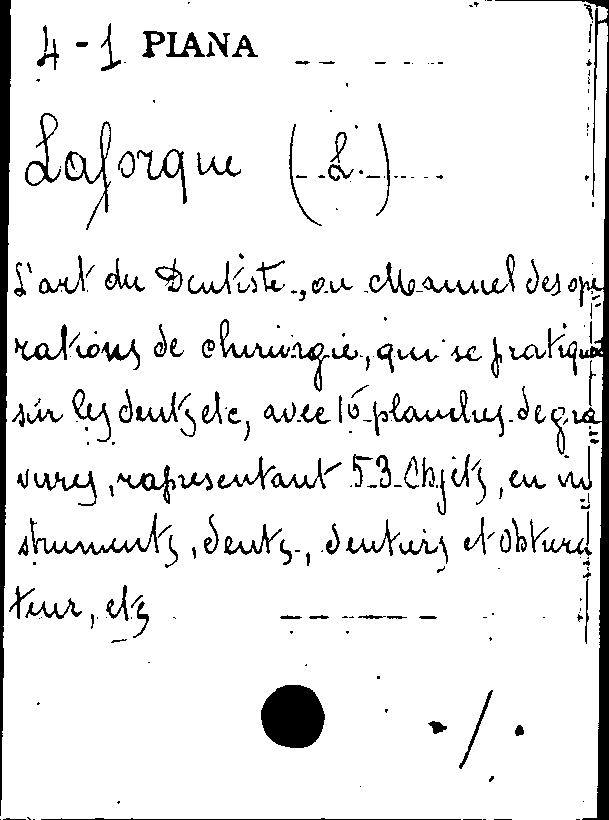 4 - 1 PIANA
Laforque (L.)
L'art du Dentiste, ou Manuel des ope
rations de chirurgie, qui se pratique
sur les dents etc, avec 16 planches de gra
vures, rapresentant 53 Objets, en in
struments, dents, dentiers et Obtura
teur, etz